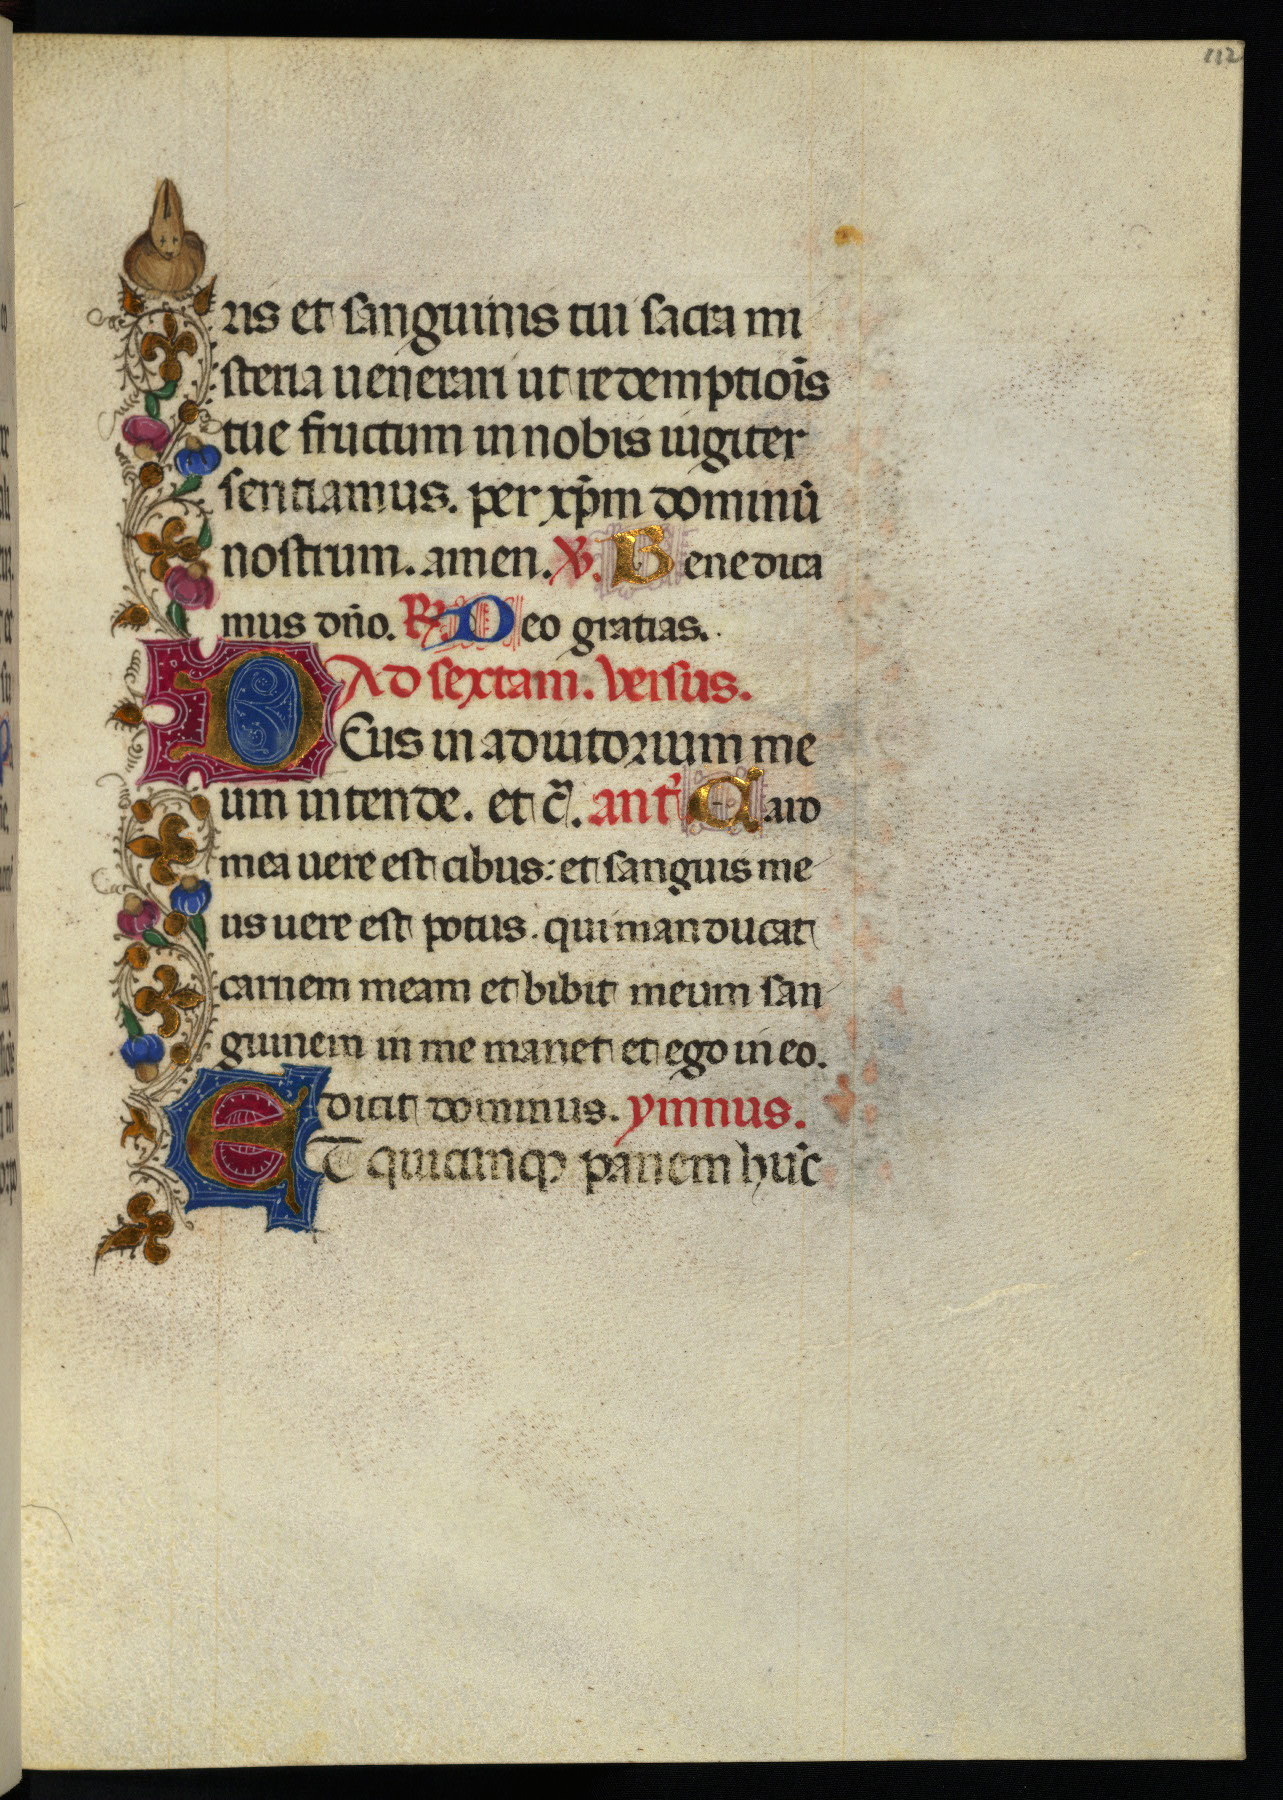 112
ris et sanguinis tui sacra mi
steria uenerari ut redemptiõis
tue fructum in nobis iugiter
sentiamus. per xp̄m dominū
nostrum. amen. ℣. Benedica
mus dn̄o. ℟. Deo gratias.
Ad sextam. versus.
DEus in adiutorium me
um intende. et c̃. ant̃ Caro
mea uere est cibus: et sanguis me
us uere est potus. qui manducat
carnem meam et bibit meum san
guinem in me manet et ego in eo.
dicit dominus. ymnus.
ET quicunqꝫ panem hũc